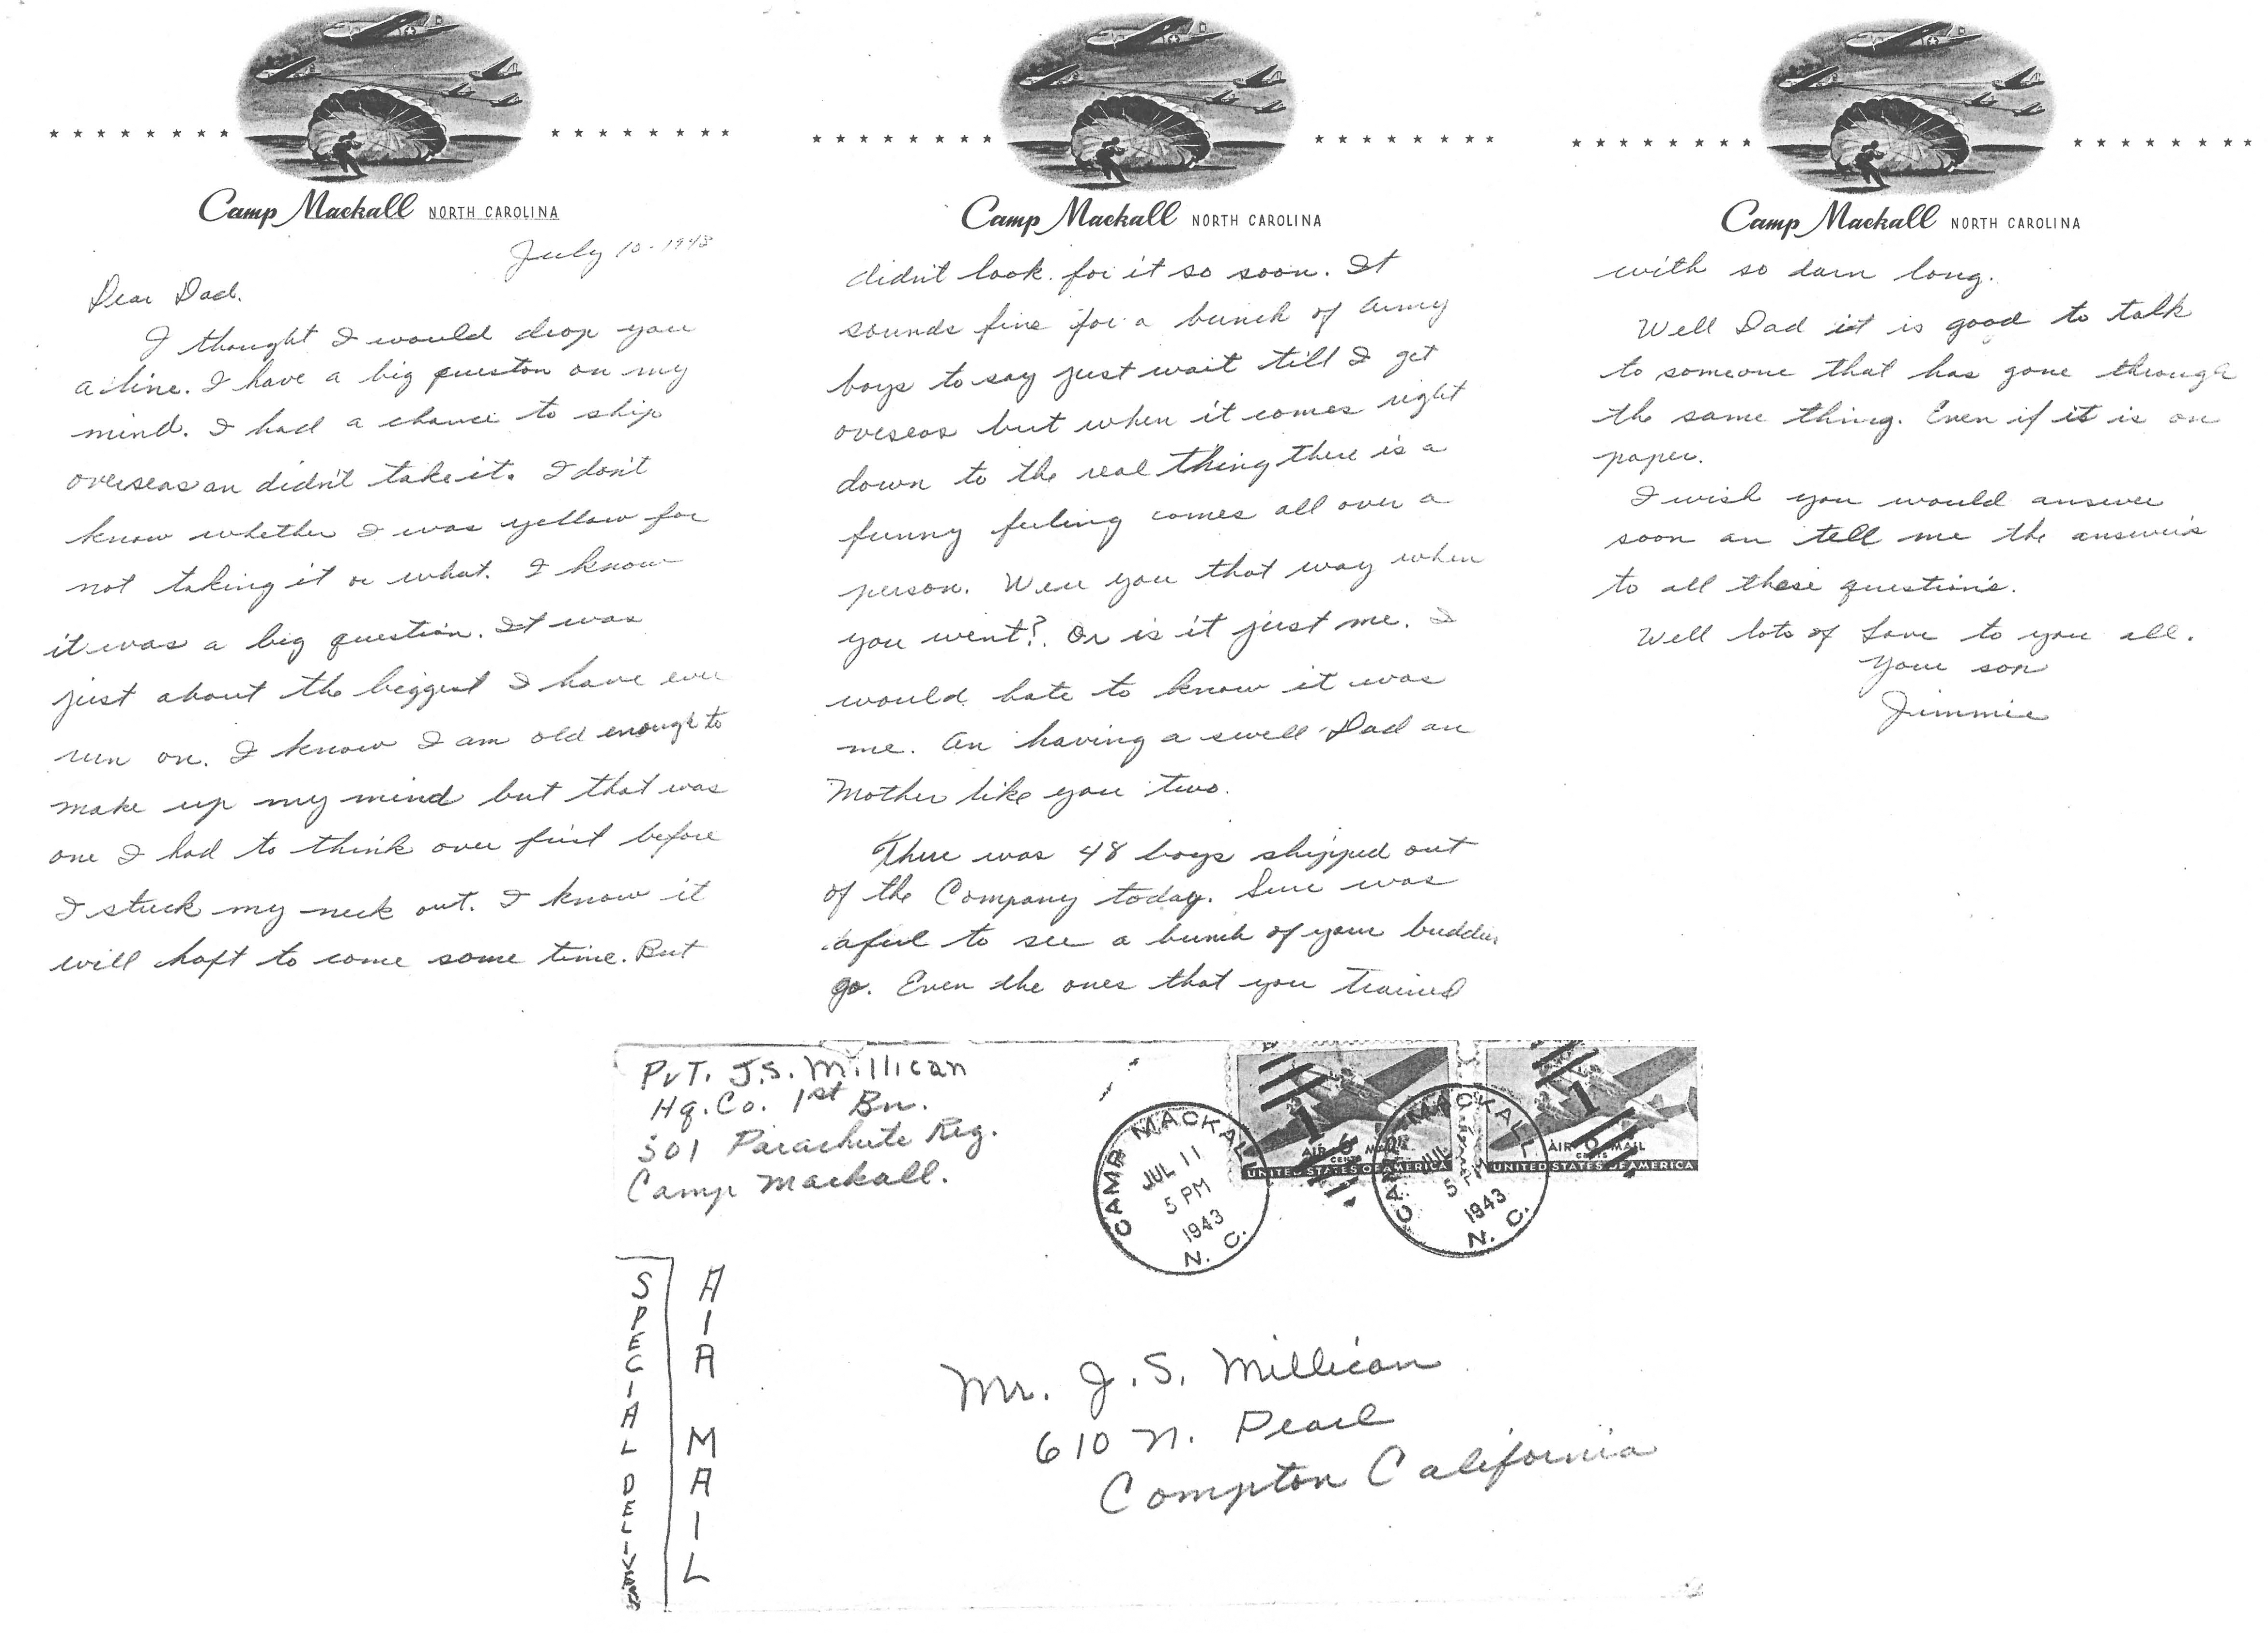 Camp Mackall NORTH CAROLINA
July 10-1943
Dear Dad.
I thought I would drop you
a line. I have a big queston on my
mind. I had a chance to ship
overseas an didn't take it. I don't
know whether I was yellow for
not taking it or what. I know
it was a big question. It was
just about the biggest I have ever
run on. I know I am old enough to
make up my mind but that was
one I had to think over first before
I stuck my neck out. I know it
will haft to come some time. But
Camp Mackall NORTH CAROLINA
didn't look for it so soon. It
sounds fine for a bunch of army
boys to say just wait till I get
overseas but when it comes right
down to the real thing there is a
funny feeling comes all over a
person. Were you that way when
you went? Or is it just me. I
would hate to know it was
me. An having a swell Dad an
Mother like you two.
There was 48 boys shipped out
of the Company today. Sure was
aful to see a bunch of your buddies
go. Even the ones that you trained
Camp Mackall NORTH CAROLINA
with so darn long.
Well Dad it is good to talk
to someone that has gone through
the same thing. Even if it is on
paper.
I wish you would answer
soon an tell me the answer's
to all these question's.
Well lots of Love to you all.
Your son
Jimmie
Pvt. J.S. Millican
Hq. Co. 1st Bn.
501 Parachute Reg.
Camp Mackall.
CAMP MACKALL
JUL 11
5 PM
1943
N. C.
AIR 6 MAIL
CENTS
UNITED STATES OF AMERICA
CAMP MACKALL
JUL
5 PM
1943
N. C.
AIR 6 MAIL
CENTS
UNITED STATES OF AMERICA
SPECIAL DELIVERY
AIR MAIL
Mr. J. S. Millican
610 N. Pearl
Compton California